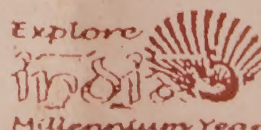 Explore
india
Millennium Year